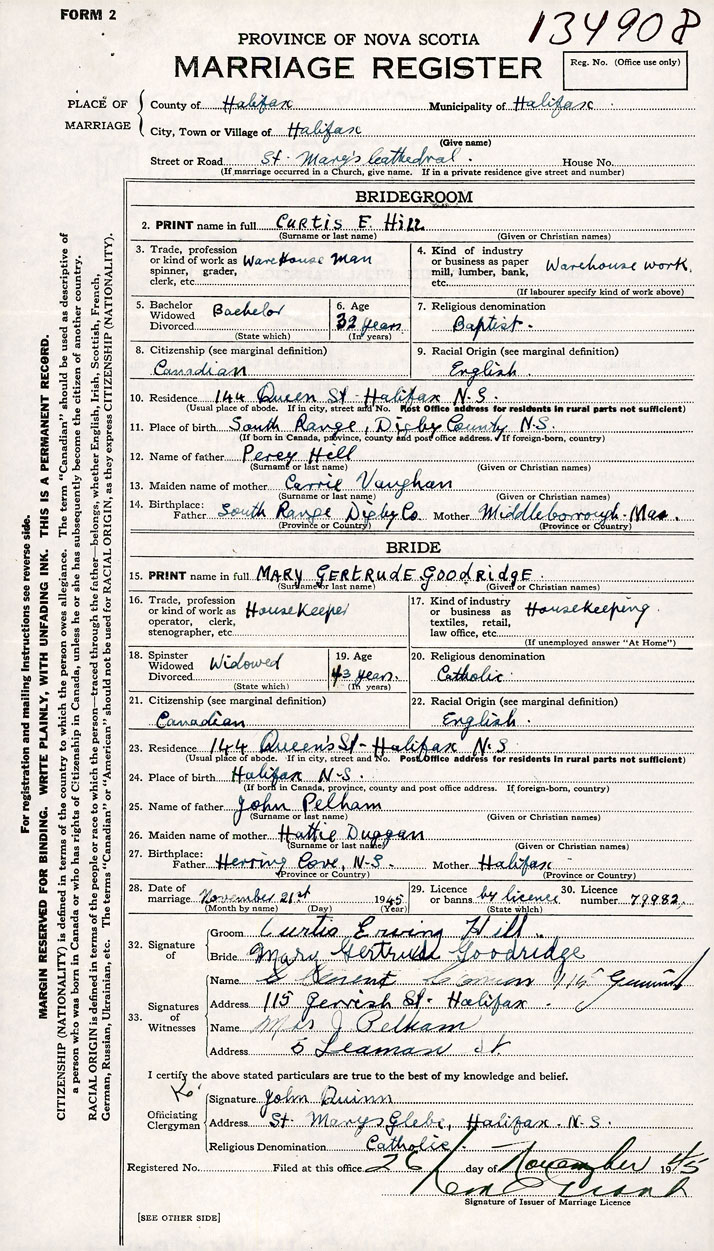 FORM 2
134908
PROVINCE OF NOVA SCOTIA
MARRIAGE REGISTER
Reg. No. (Office use only)
PLACE OF MARRIAGE
County of Halifax Municipality of Halifax
City, Town or Village of Halifax
(Give name)
Street or Road St. Mary's Cathedral. House No.
(If marriage occurred in a Church, give name. If in a private residence give street and number)
BRIDEGROOM
2. PRINT name in full Curtis E. Hill
(Surname or last name) (Given or Christian names)
3. Trade, profession or kind of work as spinner, grader, clerk, etc. WareHouse Man
4. Kind of industry or business as paper mill, lumber, bank, etc. Warehouse work.
(If labourer specify kind of work above)
5. Bachelor Widowed Divorced Bachelor
(State which)
6. Age 32 years
(In years)
7. Religious denomination
Baptist.
8. Citizenship (see marginal definition)
Canadian
9. Racial Origin (see marginal definition)
English.
10. Residence 144 Queen St - Halifax N.S.
(Usual place of abode. If in city, street and No. Post Office address for residents in rural parts not sufficient)
11. Place of birth South Range, Digby County N.S.
(If born in Canada, province, county and post office address. If foreign-born, country)
12. Name of father Percy Hill
(Surname or last name) (Given or Christian names)
13. Maiden name of mother Carrie Vaughan
(Surname or last name) (Given or Christian names)
14. Birthplace: Father South Range Digby Co. Mother Middleborough. Mas.
(Province or Country) (Province or Country)
BRIDE
15. PRINT name in full MARY GERTRUDE GOODRIDGE.
(Surname or last name) (Given or Christian names)
16. Trade, profession or kind of work as operator, clerk, stenographer, etc. HouseKeeper
17. Kind of industry or business as textiles, retail, law office, etc. Housekeeping.
(If unemployed answer "At Home")
18. Spinster Widowed Divorced Widowed
(State which)
19. Age 43 years.
(In years)
20. Religious denomination
Catholic.
21. Citizenship (see marginal definition)
Canadian
22. Racial Origin (see marginal definition)
English.
23. Residence 144 Queen's St - Halifax N.S
(Usual place of abode. If in city, street and No. Post Office address for residents in rural parts not sufficient)
24. Place of birth Halifax N-S.
(If born in Canada, province, county and post office address. If foreign-born, country)
25. Name of father John Pelham
(Surname or last name) (Given or Christian names)
26. Maiden name of mother Hattie Duggan
(Surname or last name) (Given or Christian names)
27. Birthplace: Father Herring Cove, N.S. Mother Halifax
(Province or Country) (Province or Country)
28. Date of marriage November 21st 1945
(Month by name) (Day) (Year)
29. Licence or banns by licence
(State which)
30. Licence number 79982.
32. Signature of
Groom Curtis Erwing Hill.
Bride Mary Gertrude Goodridge
33. Signatures of Witnesses
Name
Address 115 Gerrish St - Halifax.
Name Mrs J Pelham
Address 5 Leaman St
I certify the above stated particulars are true to the best of my knowledge and belief.
Officiating Clergyman
Signature John Quinn
Address St. Mary's Glebe, Halifax. N.S.
Religious Denomination Catholic.
Registered No. Filed at this office 26 day of November 1945
Signature of Issuer of Marriage Licence
[SEE OTHER SIDE]
For registration and mailing instructions see reverse side.
MARGIN RESERVED FOR BINDING. WRITE PLAINLY, WITH UNFADING INK. THIS IS A PERMANENT RECORD.
CITIZENSHIP (NATIONALITY) is defined in terms of the country to which the person owes allegiance. The term "Canadian" should be used as descriptive of
a person who was born in Canada or who has rights of Citizenship in Canada, unless he or she has subsequently become the citizen of another country.
RACIAL ORIGIN is defined in terms of the people or race to which the person—traced through the father—belongs, whether English, Irish, Scottish, French,
German, Russian, Ukrainian, etc. The terms "Canadian" or "American" should not be used for RACIAL ORIGIN, as they express CITIZENSHIP (NATIONALITY).